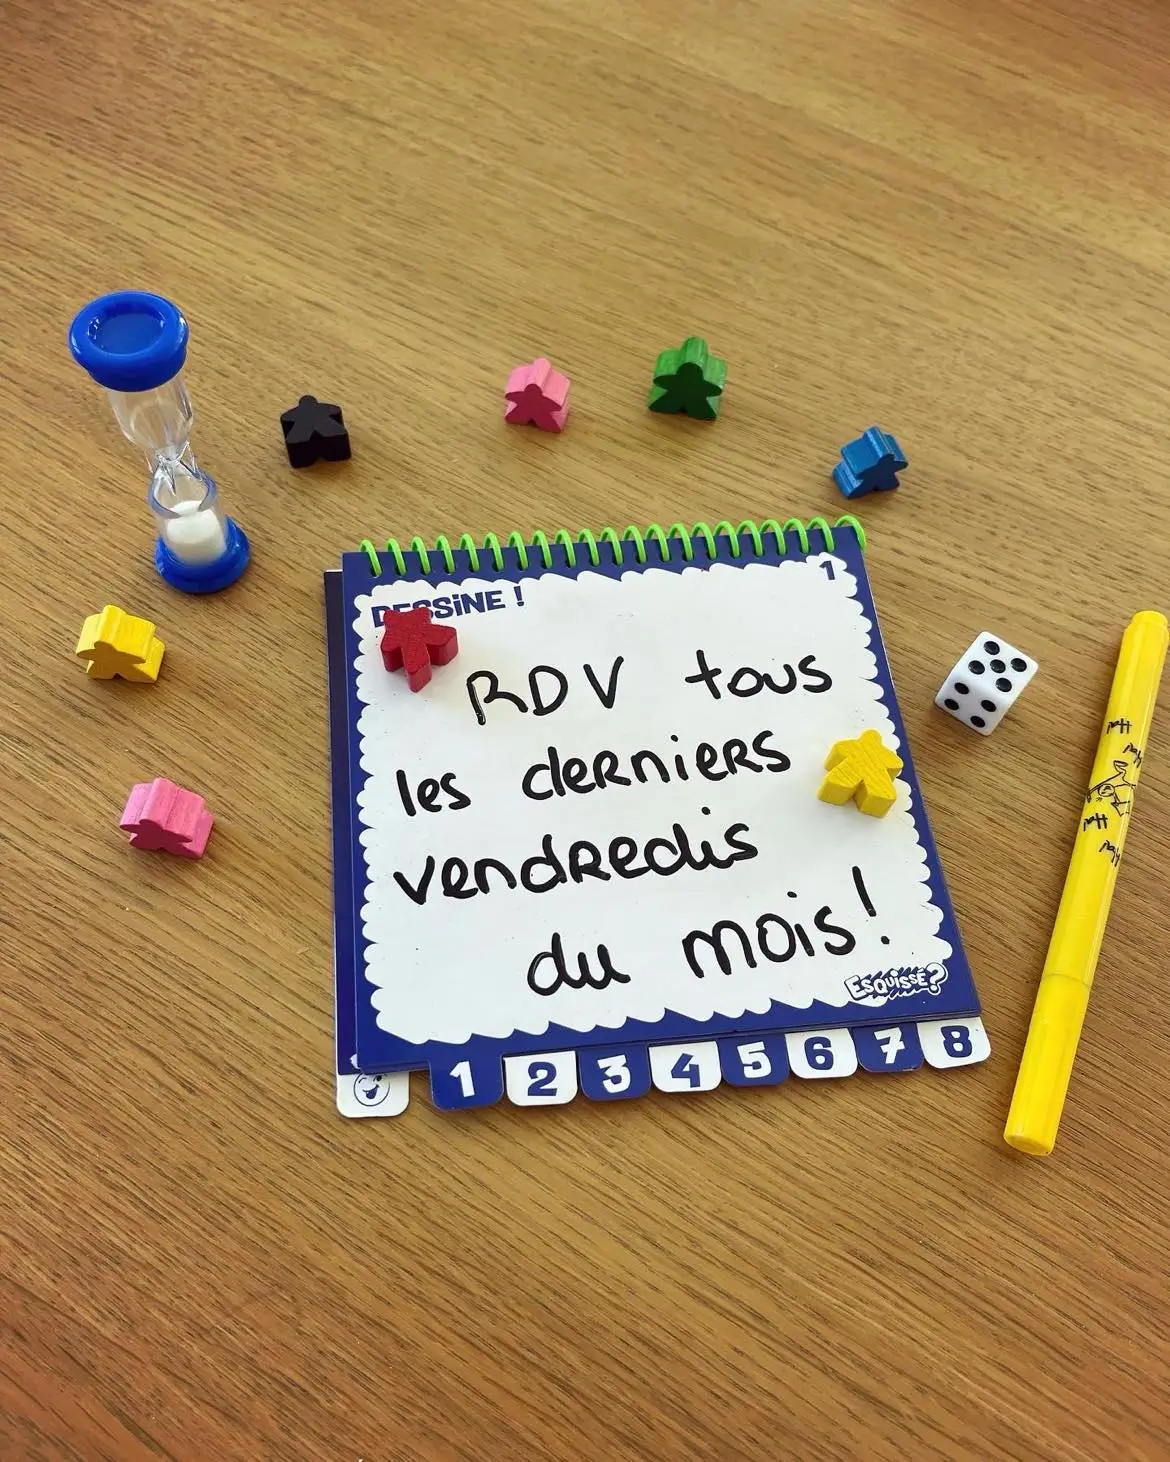 DESSiNE !
1
RDV tous
les derniers
vendredis
du mois!
ESQUISSÉ?
1 2 3 4 5 6 7 8